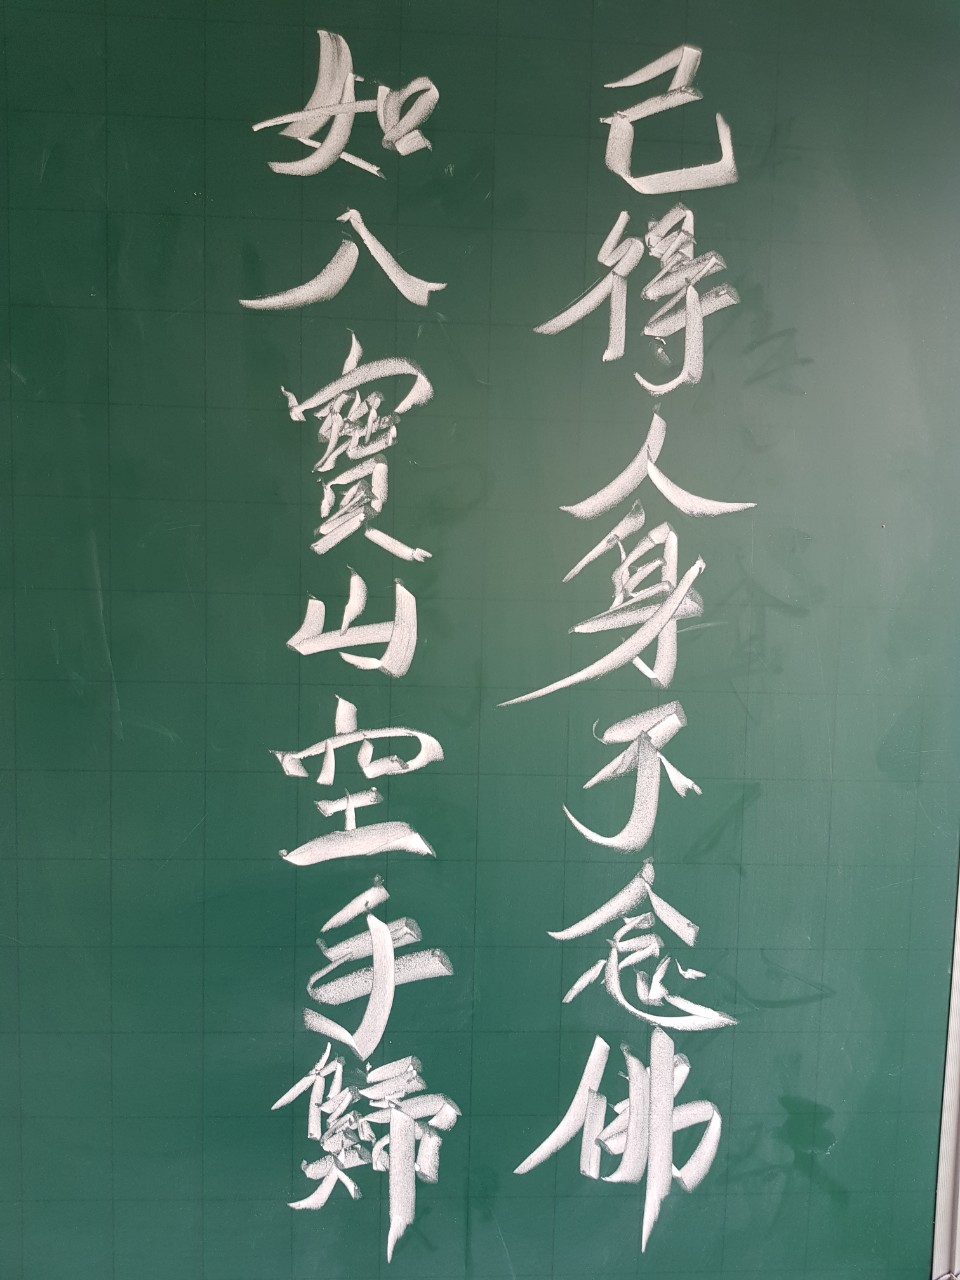 己得人身不念佛
如入寶山空手歸